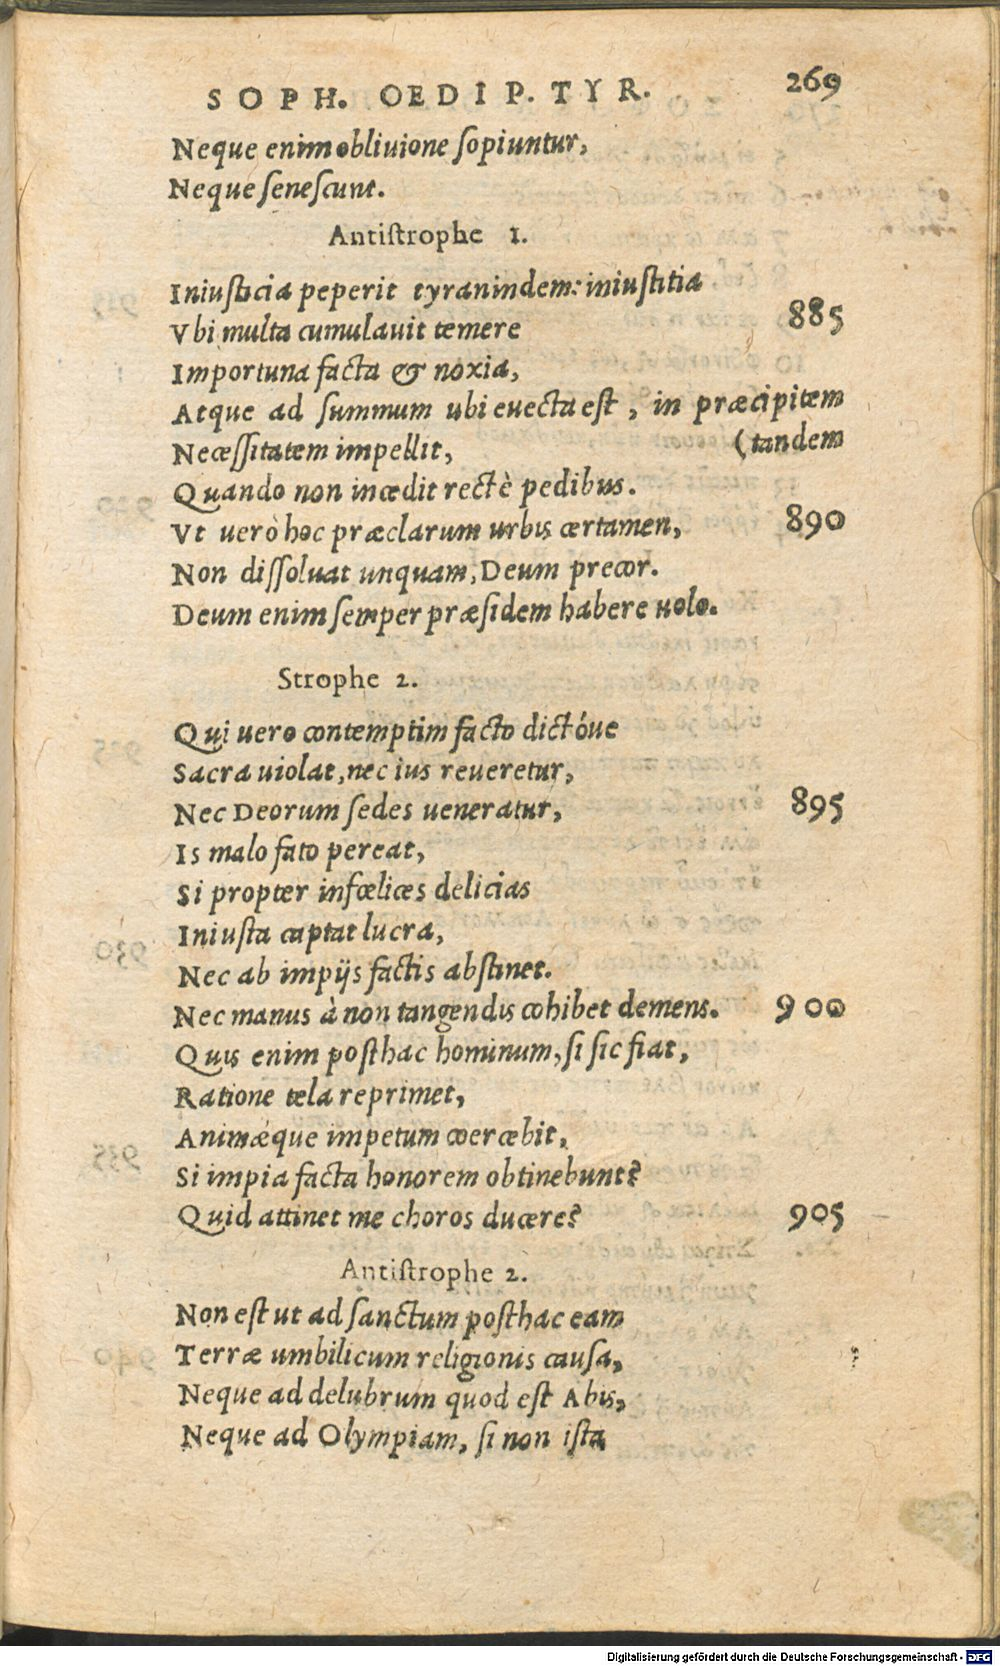 SOPH. OEDIP. TYR. 269
Neque enim obliuione sopiuntur,
Neque senescunt.
Antistrophe 1.
Iniusticia peperit tyranindem: iniustitia
Vbi multa cumulauit temere 885
Importuna facta & noxia,
Atque ad summum ubi euecta est, in præcipitem
Necessitatem impellit, (tandem
Quando non incedit rectè pedibus.
Vt uerò hoc præclarum urbis certamen, 890
Non dissoluat unquam, Deum precor.
Deum enim semper præsidem habere uolo.
Strophe 2.
Qui uero contemptim facto dictóue
Sacra uiolat, nec ius reueretur,
Nec Deorum sedes ueneratur, 895
Is malo fato pereat,
Si propter infœlices delicias
Iniusta captat lucra,
Nec ab impijs factis abstinet.
Nec manus à non tangendis cohibet demens. 900
Quis enim posthac hominum, si sic fiat,
Ratione tela reprimet,
Animæque impetum coercebit,
Si impia facta honorem obtinebunt?
Quid attinet me choros ducere? 905
Antistrophe 2.
Non est ut ad sanctum posthac eam
Terræ umbilicum religionis causa,
Neque ad delubrum quod est Abis,
Neque ad Olympiam, si non ista
Digitalisierung gefördert durch die Deutsche Forschungsgemeinschaft - DFG